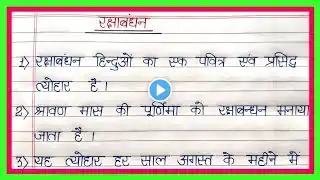 रक्षाबंधन
1) रक्षाबंधन हिन्दुओं का एक पवित्र एवं प्रसिद्ध
त्योहार है।
2) श्रावण मास की पूर्णिमा को रक्षाबन्धन मनाया
जाता है।
3) यह त्योहार हर साल अगस्त के महीने में